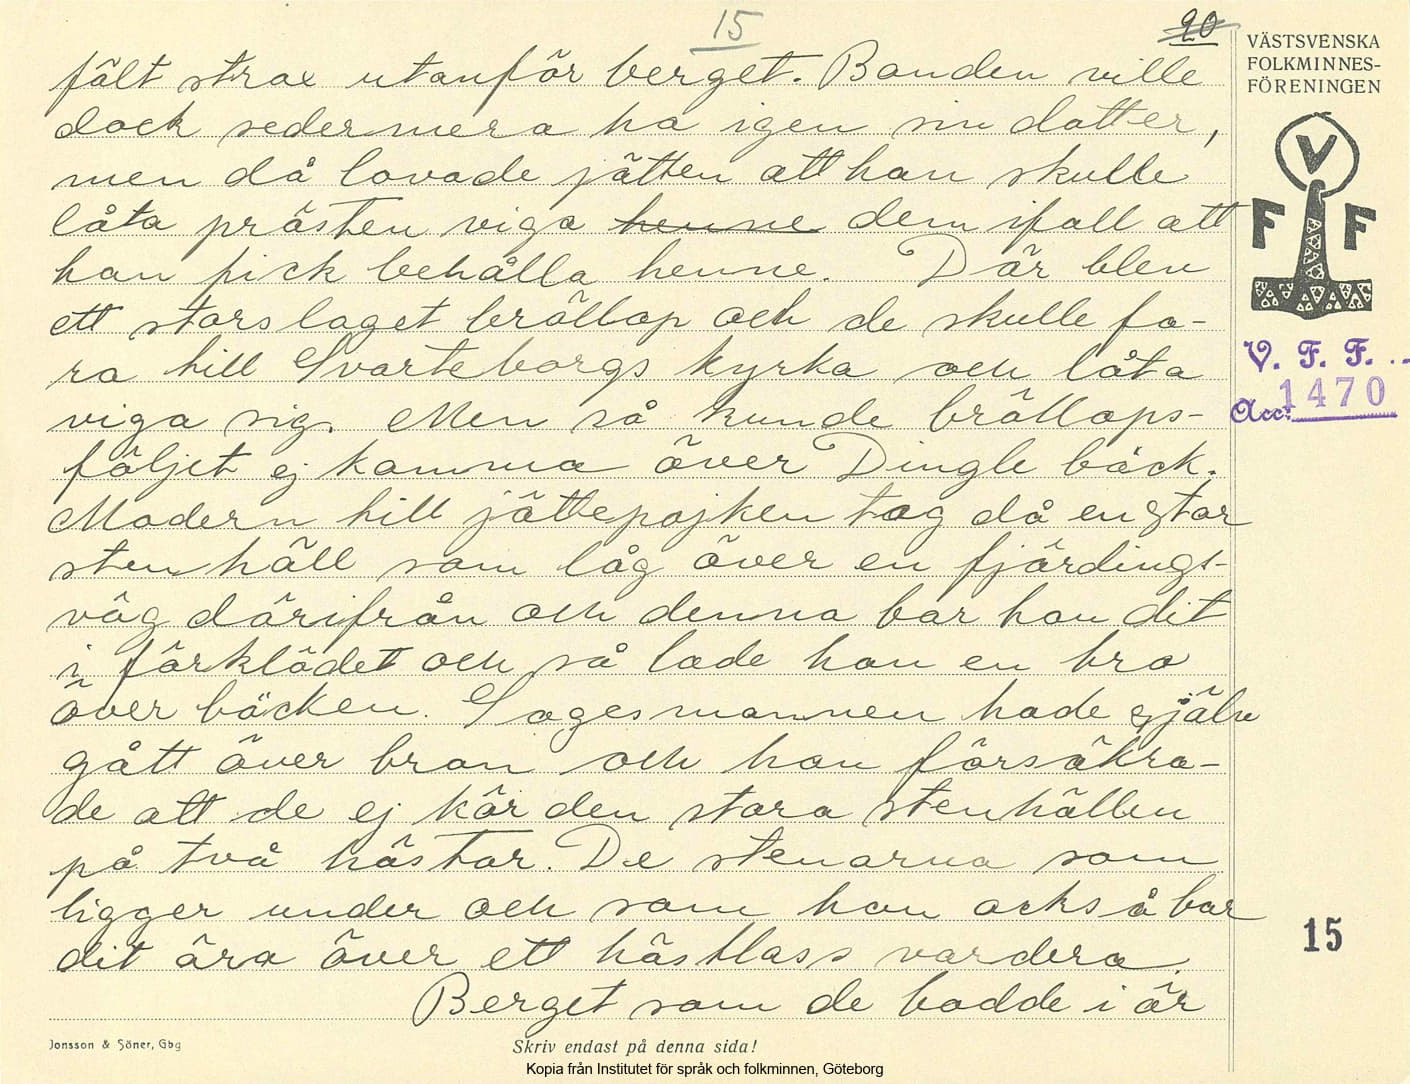 15
20
VÄSTSVENSKA
FOLKMINNES-
FÖRENINGEN
V
F F
V. F. F.
Acc: 1470
fält strax utanför berget. Bonden ville
dock sedermera ha igen sin dotter,
men då lovade jätten att han skulle
låta prästen viga henne dem ifall att
han fick behålla henne. Där blev
ett storslaget bröllop och de skulle fa-
ra till Svarteborgs kyrka och låta
viga sig. Men så kunde bröllops-
följet ej komma över Dingle bäck.
Modern till jättepojken tog då en stor
stenhäll som låg över en fjärdings-
väg därifrån och denna bar hon dit
i förklädet och så lade hon en bro
över bäcken. Sagesmannen hade själv
gått över bron och han försäkra-
de att de ej kör den stora stenhällen
på två hästar. De stenarna som
ligger under och som hon också bar
dit äro över ett hästlass vardera.
Berget som de bodde i är
15
Jonsson & Söner, Gbg
Skriv endast på denna sida!
Kopia från Institutet för språk och folkminnen, Göteborg